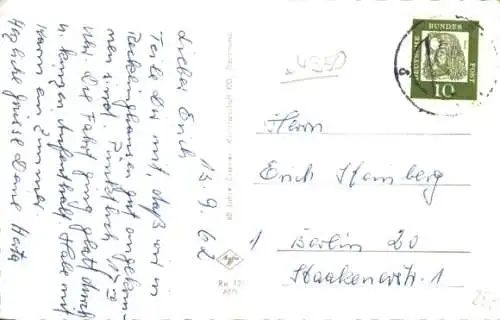 15. 9. 62
Lieber Erich
Teile Dir mit, daß wir in
Recklinghausen gut angekom-
men sind. Pünktlich 17
Uhr. Die Fahrt ging glatt durch
u. kurzen Aufenthalt. Habe mit
kann ein Zimmer.
Herzliche Grüsse Deine Herta
4350
DEUTSCHE
BUNDES
POST
10
9
Herrn
Erich Steinberg
1 Berlin 20
Staakenerstr. 1
Agfa